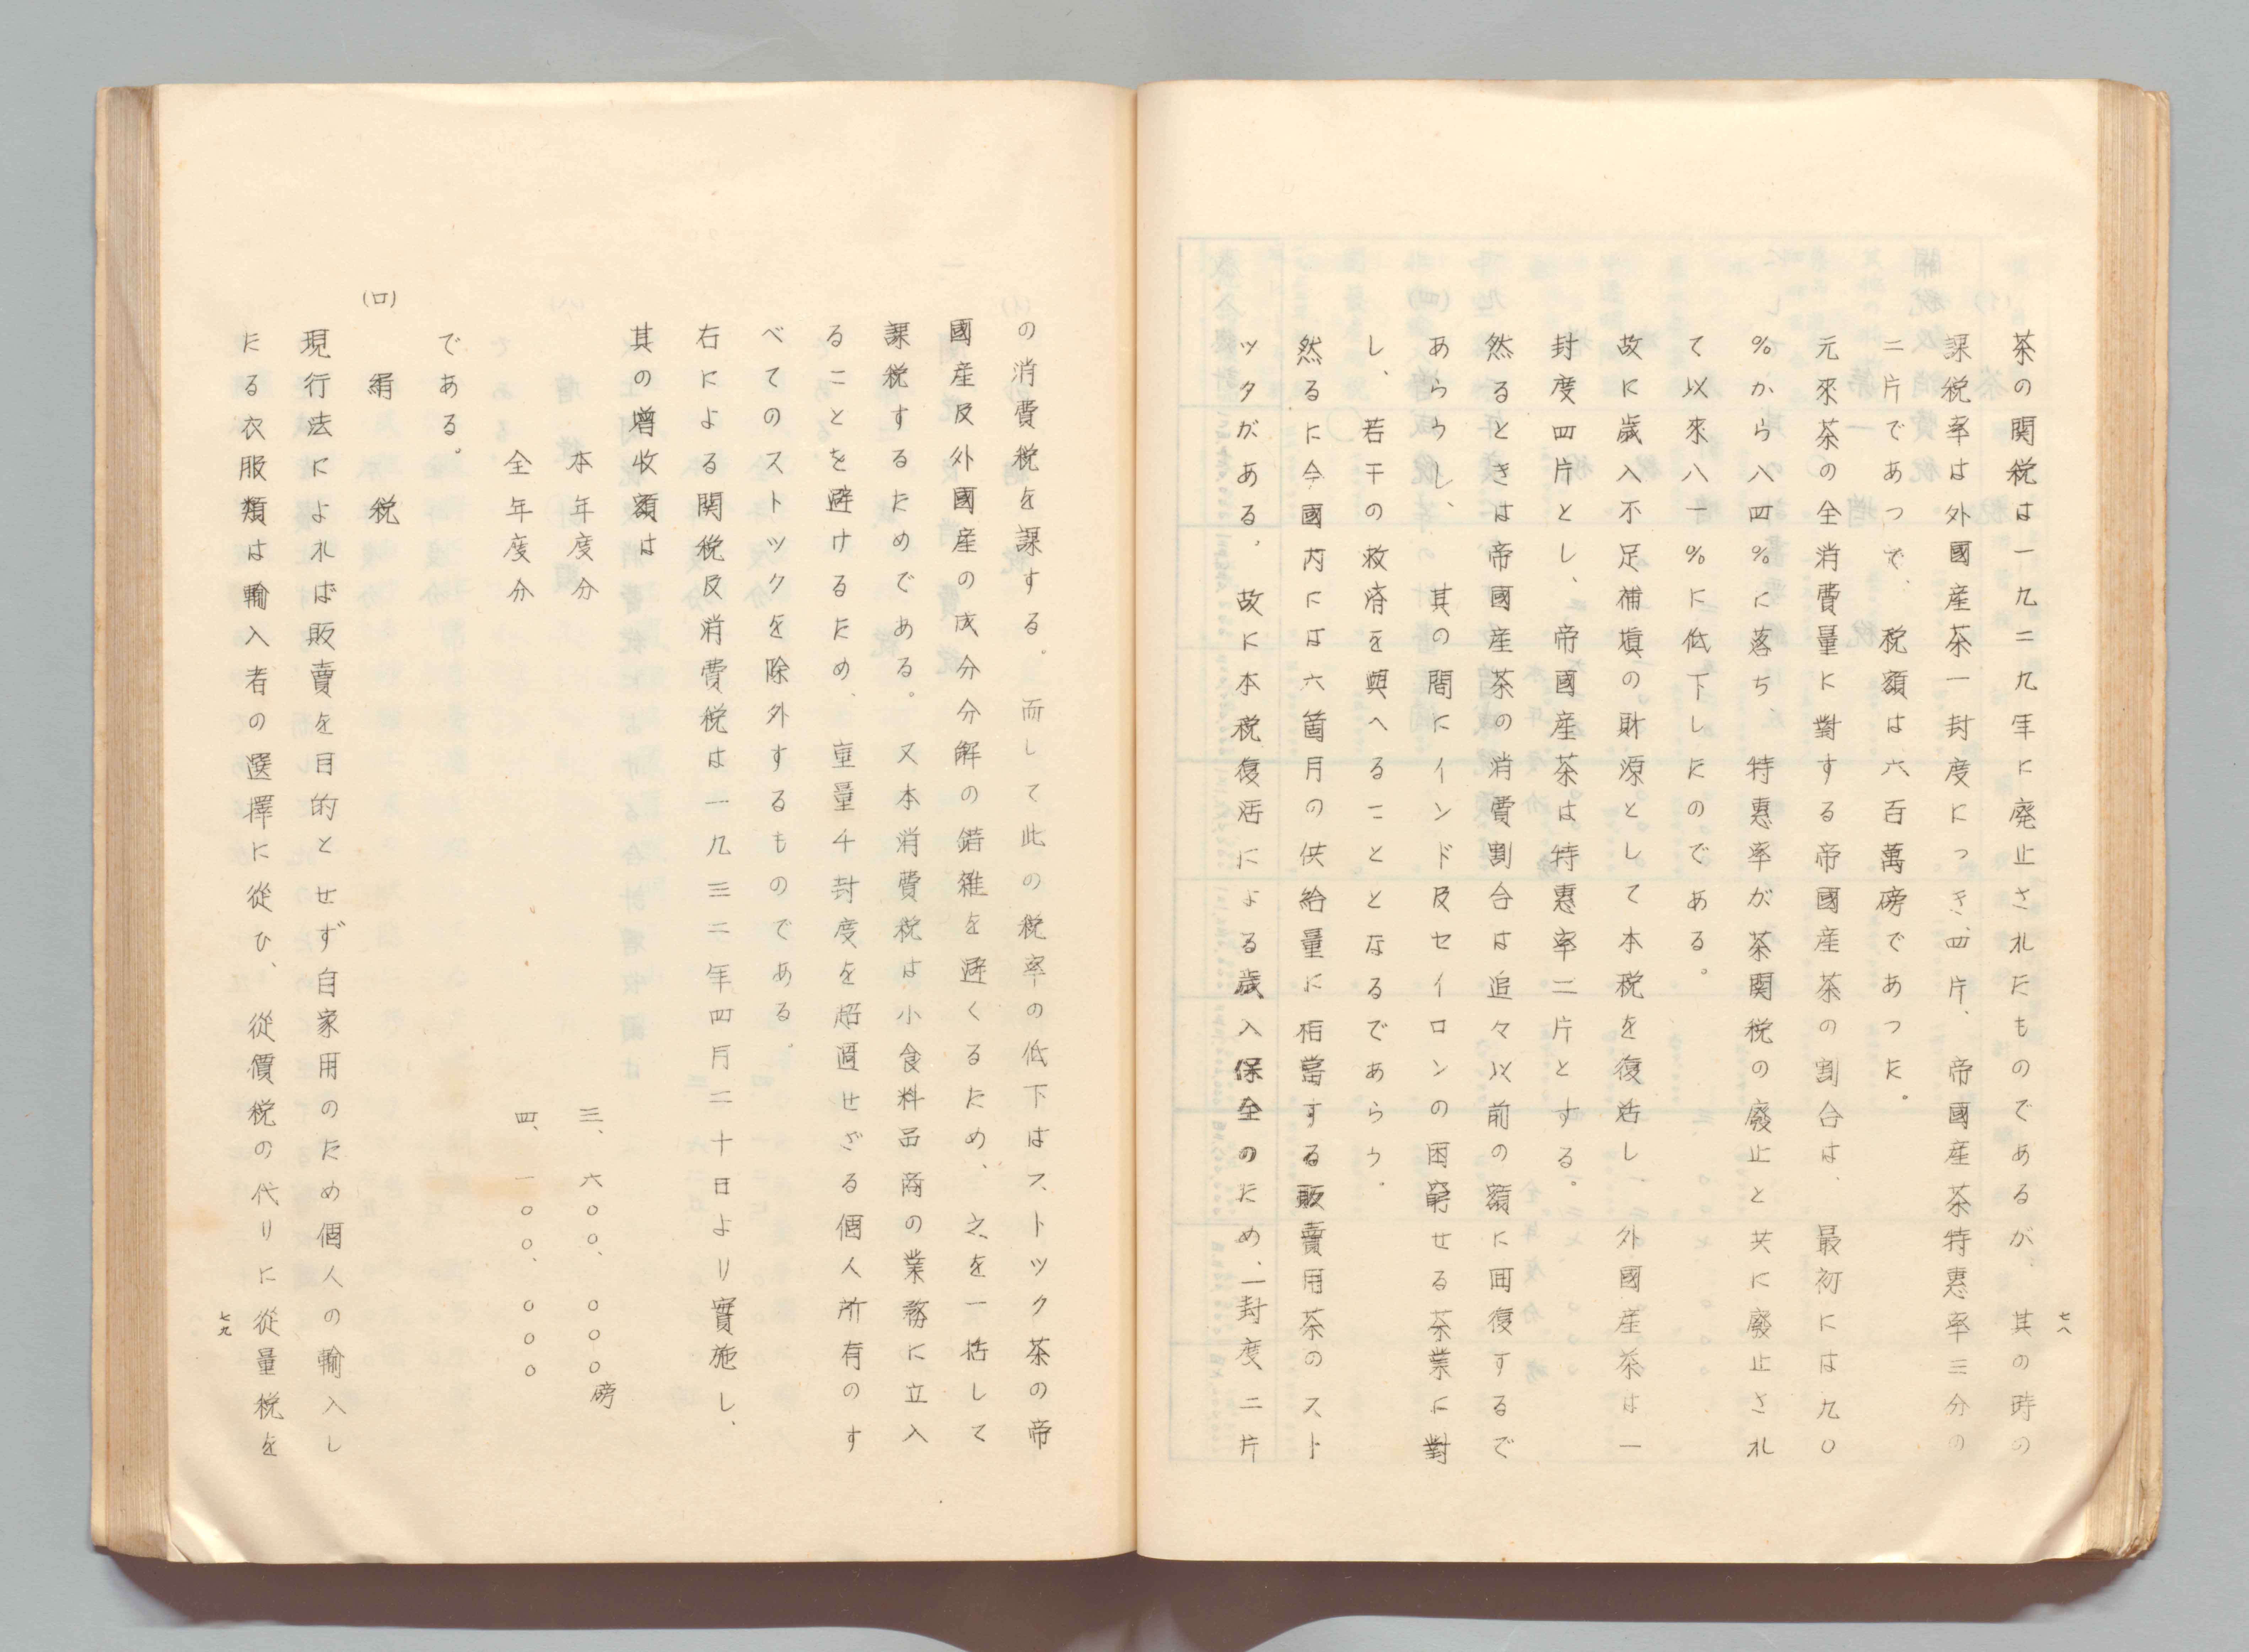 七八
茶の関税は一九二九年に廃止されたものであるが、其の時の
課税率は外國産茶一封度につき、四片、帝國産茶特惠率三分の
二片であつで、税額は六百萬磅であつた。
元來茶の全消費量に對する帝國産茶の割合は、最初には九〇
%から八四%に落ち、特惠率が茶関税の廢止と共に廢止され
て以來八一%に低下したのである。
故に歳入不足補塡の財源として本税を復活し、外國産茶は一
封度四片とし、帝國産茶は特惠率二片とする。
然るときは帝國産茶の消費割合は追々以前の額に囘復するで
あらうし、其の間にインド及セイロンの困窮せる茶業に對
し、若干の救濟を與へることとなるであらう。
然るに今國内には六箇月の供給量に相當する販賣用茶のスト
ツクがある、故に本税復活による歳入保全のため、一封度二片
の消費税を課する。而して此の税率の低下はストック茶の帝
國産及外國産の成分分解の錯雑を避くるため、之を一括して
課税するためである。又本消費税は小食料品商の業務に立入
ることを避けるため、重量千封度を超過せざる個人所有のす
べてのストツクを除外するものである。
右による関税及消費税は一九三二年四月二十日より實施し、
其の増收額は
本年度分 三、六〇〇、〇〇〇磅
全年度分 四、一〇〇、〇〇〇
である。
(ロ) 絹税
現行法によれば販賣を目的とせず自家用のため個人の輸入し
たる衣服類は輸入者の選擇に從ひ、從價税の代りに從量税を
七九